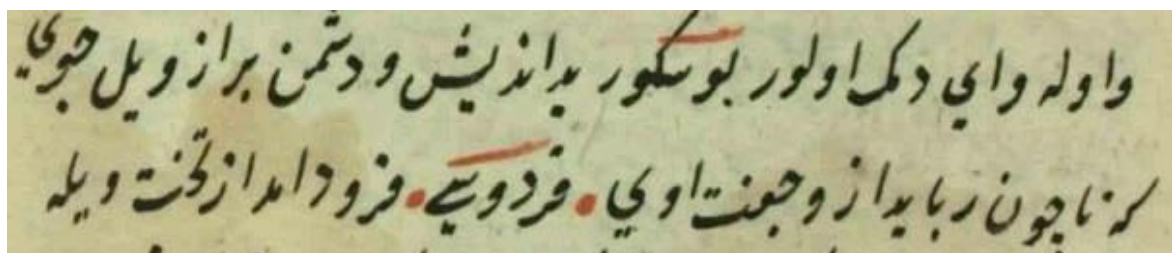 واوله واي دمك اولور بوشكور بدانديش ودشمن براز ويل جوي
كه تا چون ربايد ازو جفت اوي • فردوسي • فرود امد از تخت ويله